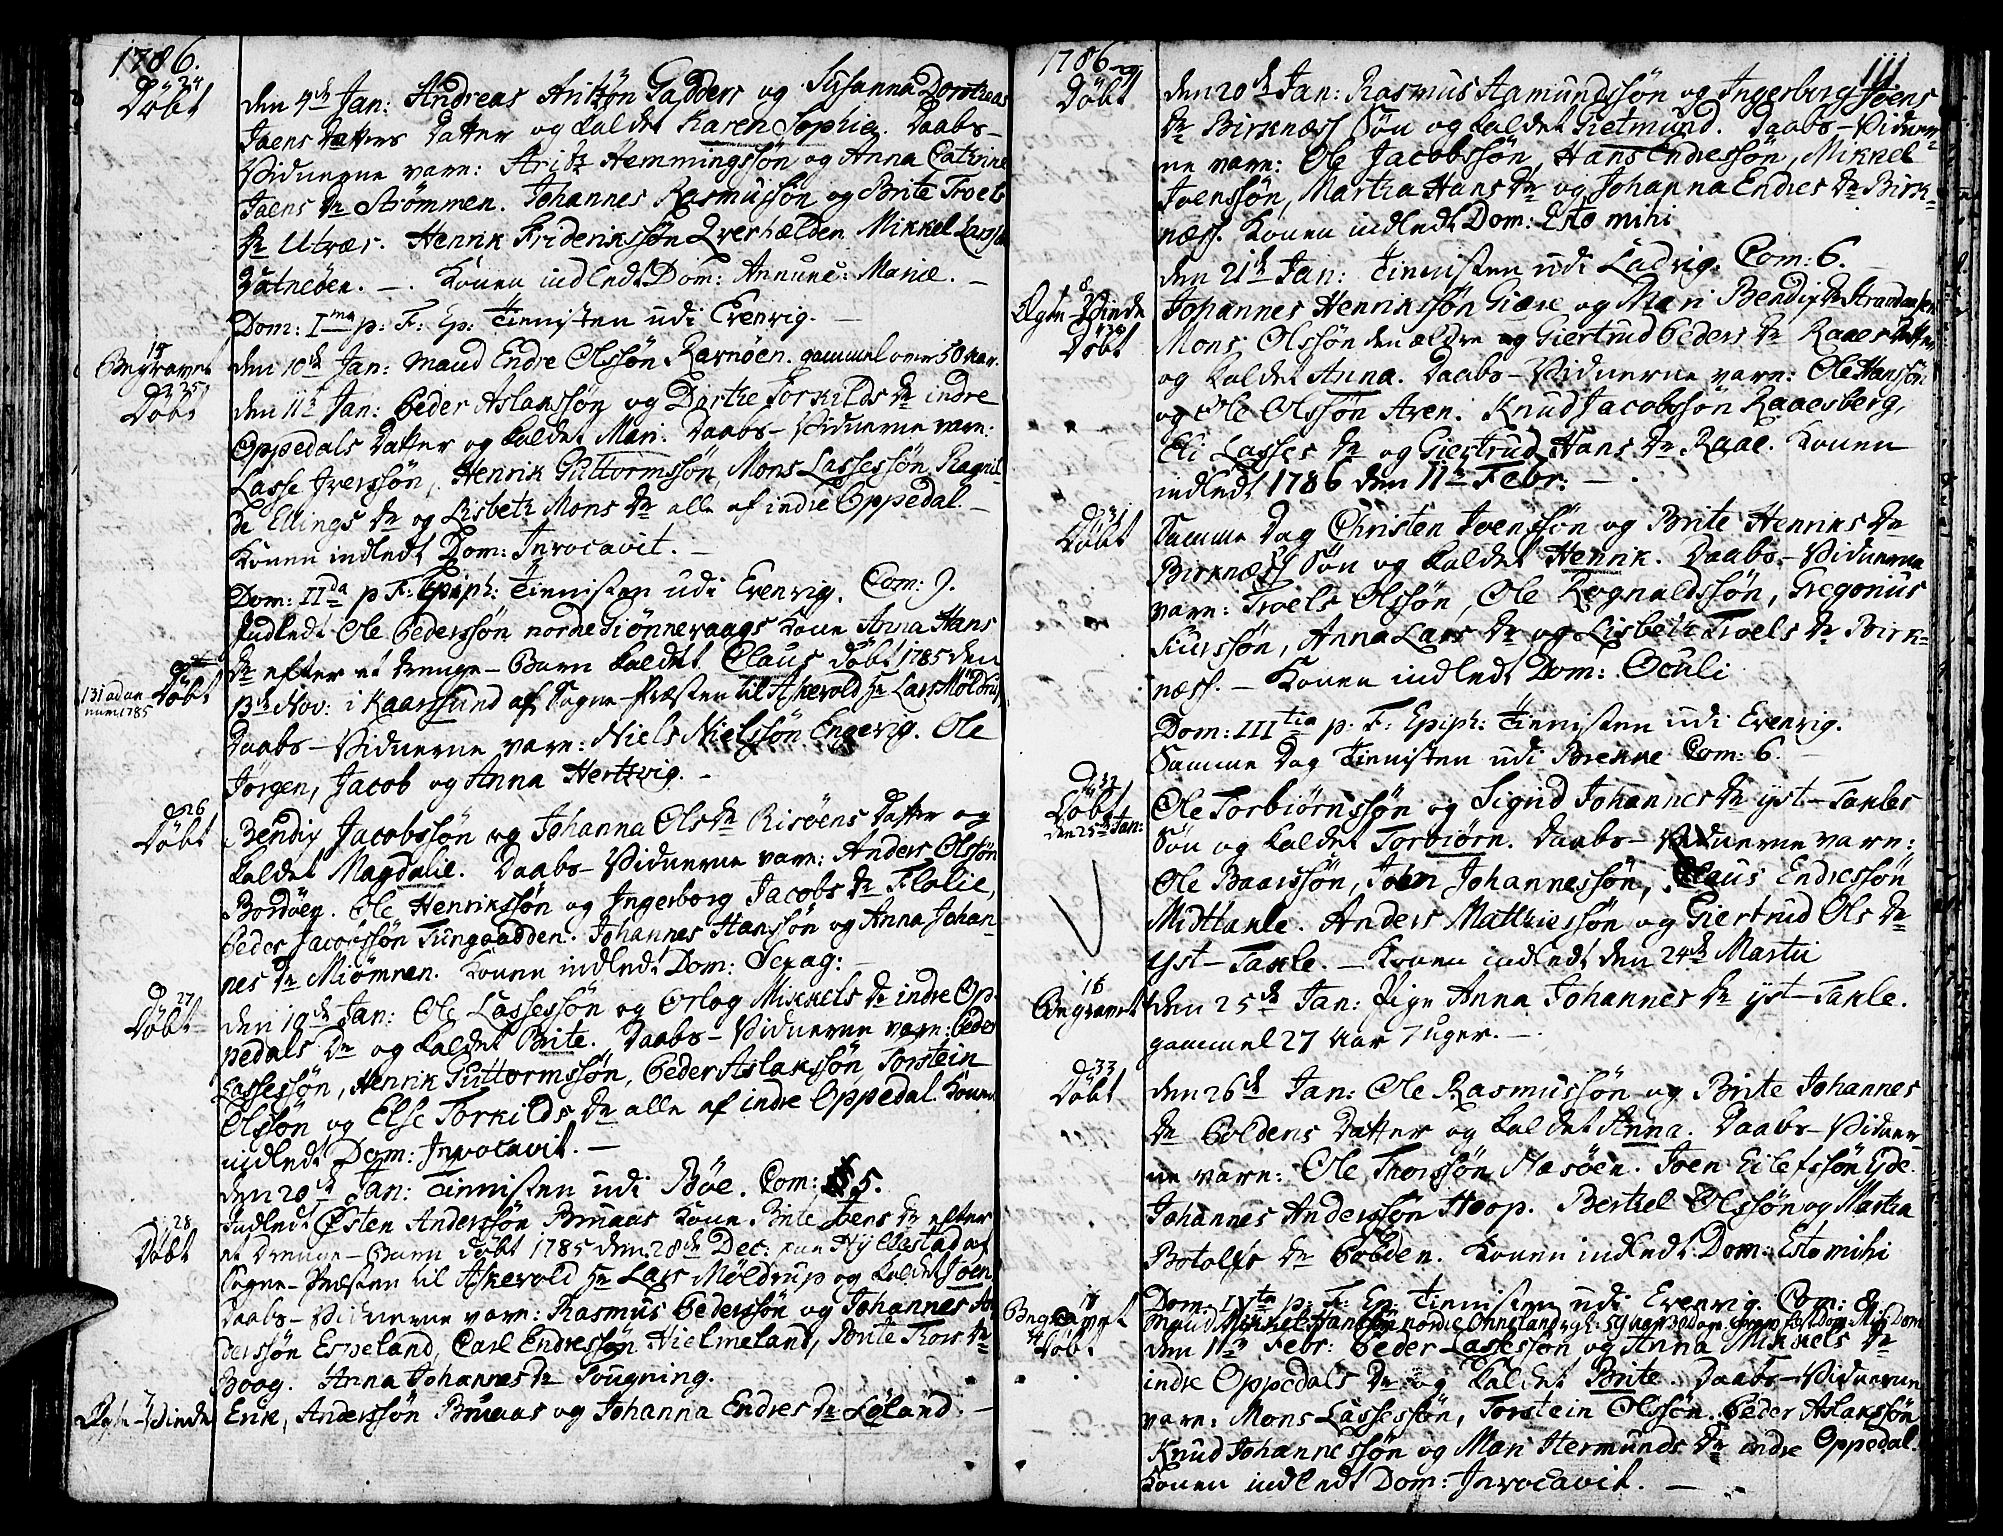 1786.
24
Døbt
den 4de Jan: Andreas Aritzøn Gadders og Susanna Dorothea
Jaens Datters Datter og kaldet Karen Sophie. Daabs-
Vidnerne vare: Aritz Hemmingssøn og Anna Catrine
Jaens Dr Strømmen. Johannes Rasmussøn og Brite Troels
Dr Utvær. Henrik Frideriksøn Qverhælden Mikkel Larss.
Datneøen. - Konen indledt Dom: Annunc: Mariæ. -
Dom: Ima p: F: Ep: Tienisten udi Evenvig. -
Begravet
den 10de Jan: Mand Endre Olssøn Ravnøen. gammel over 50 Aar.
25
Døbt
den 11te Jan: Peder Aslakssøn og Dorthe Torkilds Dr indre
Oppedals Datter og kaldet Mari. Daabs-Vidnerne vare:
Lasse Iverssøn, Henrik Guttormssøn, Mons Lassessøn, Ragnil-
de Ellings Dr og Lisbeth Mons Dr alle af indre Oppedal. -
Konen indledt Dom: Invocavit. -
Dom: IIda p F: Epiph: Tienisten udi Evenvig. Com: 9.
Indledt Ole Pederssøn nordre Giønnevaags Kone Anna Hans
131 ad an
num 1785
Døbt
Dr efter et Drenge-Barn kaldet Claus døbt 1785 den
13de Nov: i Kaarsund af Sogne-Præsten til Askevold Hr Lars Møldrup
Daabs-Vidnerne vare: Niels Nielssøn Engevig. Ole
Jørgen, Jacob og Anna Hertzvig. -
26
Døbt
Bendix Jacobssøn og Johanna Ols Dr Risøens Datter og
kaldet Magdalie. Daabs-Vidnerne vare: Anders Olssøn
Bordøen. Ole Henrikssøn og Ingerborg Jacobs Dr Flolie,
Peder Jacobssøn Tungaadden. Johannes Hanssøn og Anna Johan-
nes Dr Miømnen. Konen indledt Dom: Sexag: -
27
Døbt
den 19de Jan: Ole Lassessøn og Orlog Mikkels Dr indre Op-
pedals Dr og kaldet Brite. Daabs-Vidnerne vare: Peder
Lassessøn, Henrik Guttormssøn, Peder Aslakssøn, Torstein
Olssøn og Else Torkilds Dr alle af indre Oppedal. Konen
indledt Dom: Invocavit. -
den 20de Jan: Tienisten udi Bøe. Com: 5.
28
Døbt
Indledt Østen Anderssøn Bruaas Kone Brite Joens Dr efter
et Drenge-Barn døbt 1785 den 28de Dec: paa Hyllestad af
Sogne-Præsten til Askevold Hr Lars Møldrup og kaldet Joen
Daabs-Vidnerne vare: Rasmus Pederssøn og Johannes An
derssøn Espeland, Carl Endressøn Hielmeland, Brite Thors Dr
Boog. Anna Johannes Dr Sougning.
7
Ægte-Viede
Erik Anderssøn Bruaas og Johanna Endres Dr Løland. -
1786
111
29
Døbt
den 20de Jan: Rasmus Aamundssøn og Ingerborg Joens
Dr Birknæss Søn og kaldet Gietmund. Daabs-Vidner-
ne vare: Ole Jacobssøn, Hans Endressøn, Mikkel
Joenssøn, Martha Hans Dr og Johanna Endres Dr Birk-
næss. Konen indledt Dom: Esto mihi
den 21de Jan: Tienisten udi Ladvig. Com: 6. -
8
Ægte-Viede
Johannes Henrikssøn Giære og Mari Bendix Dr Strandenssen
30
Døbt
Mons Olssøn den ældre og Giertrud Peders Dr Raaes Datter
og kaldet Anna. Daabs-Vidnerne vare: Ole Hanssøn
og Ole Olssøn Aven. Knud Jacobssøn Raaesberg,
Eli Lasses Dr og Giertrud Hans Dr Raae. Konen
indledt 1786 den 11te Febr: -
31
Døbt
Samme Dag Christen Joenssøn og Brite Henriks Dr
Birknæss Søn og kaldet Henrik. Daabs-Vidnerne
vare: Troels Olssøn, Ole Rognaldssøn, Gregorius
Siurssøn, Anna Lars Dr og Lisbeth Troels Dr Birk-
næss. - Konen indledt Dom: Oculi
Dom: IIItia p: F: Epiph: Tienisten udi Evenvig.
Samme Dag Tienisten udi Brekke Com: 6.
32
Døbt
den 25de Jan:
Ole Torbiørnssøn og Sigrid Johannes Dr yst-Takles
Søn og kaldet Torbiørn. Daabs-Vidnerne vare:
Ole Baarssøn, Joen Johannessøn, Claus Endressøn
Midttakle. Anders Matthiessøn og Giertrud Ols Dr
yst-Takle. - Konen indledt den 24de Martii
Begravet
den 25de Jan: Pige Anna Johannes Dr yst-Takle.
gammel 27 Aar 7 uger. -
33
Døbt
den 26de Jan: Ole Rasmussøn og Brite Johannes
Dr Poldens Datter og kaldet Anna. Daabs-Vidner-
ne vare: Ole Thorssøn Næsøen. Joen Eilefssøn Eyde.
Johannes Anderssøn Hoop. Berthel Olssøn og Martha
Botolfs Dr Polden. Konen indledt Dom: Esto mihi
Dom: IVta p: F: Ep: Tienisten udi Evenvig. Com: 8.
Begravet
34
Døbt
den 11te Febr: Peder Lassessøn og Anna Mikkels Dr
indre Oppedals Dr og kaldet Brite. Daabs-Vidnerne
vare: Mons Lassessøn, Torstein Olssøn, Peder Aslakssøn
Knud Johannessøn og Mari Hermunds Dr indre Oppedal.
Konen indledt Dom: Invocavit. -